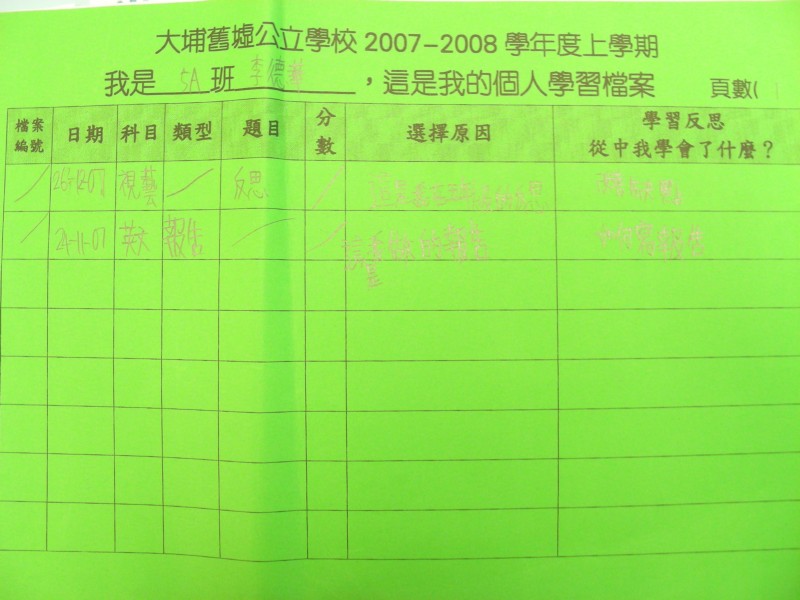 大埔舊墟公立學校 2007-2008 學年度上學期
我是 5A 班 李德謙 ，這是我的個人學習檔案 頁數(
檔案編號 日期 科目 類型 題目 分數 選擇原因 學習反思 從中我學會了什麼？
26-12-07 視藝 反思
21-11-07 英文 報告 如何寫報告